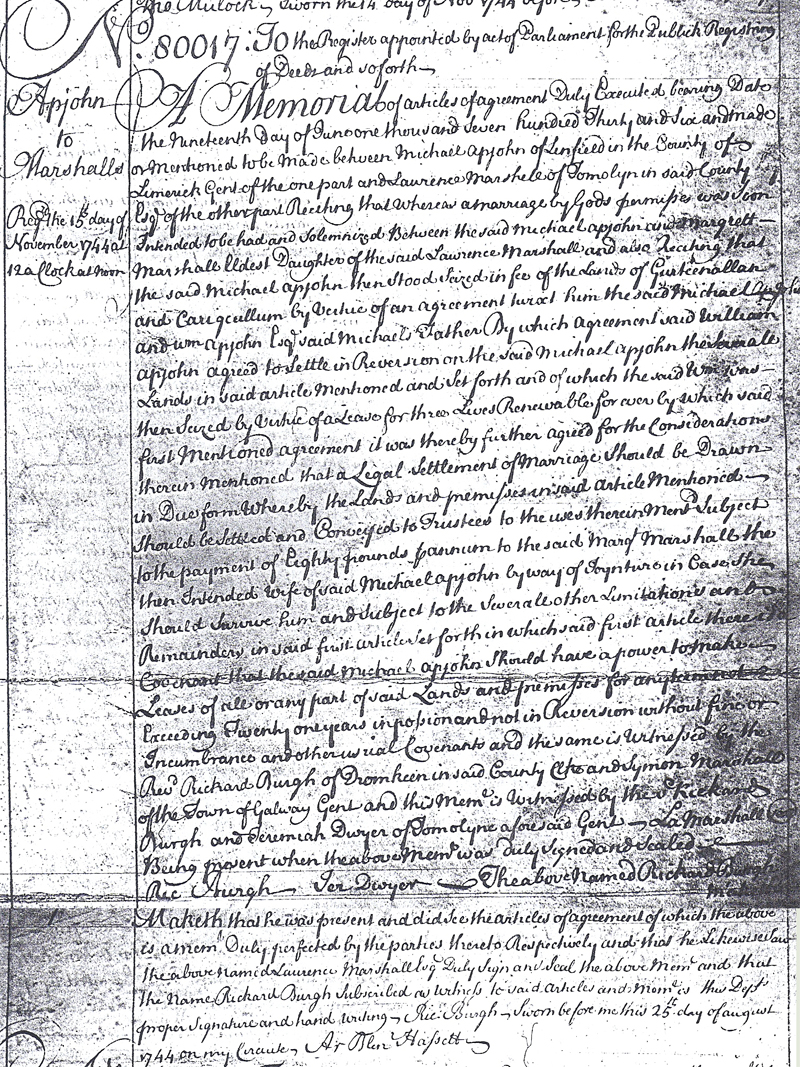 the Mulock Sworn the 14 day of Nov 1744 before
No 80017: To the Register appointed by act of Parliament for the Publick Registring
of Deeds and so forth
Apjohn
to
Marshalls
Regd the 15th day of
November 1744 at
12 a Clock at noon
A Memorial of articles of agreement Duly Executed bearing Date
the Nineteenth Day of June one thousand Seven hundred Thirty and Six and made
or Mentioned to be Made between Michael apjohn of Linfield in the County of
Limerick Gent of the one part and Laurence Marshell of Tomolyn in said County
Esqr of the other part Reciting that Whereas a marriage by Gods permission was soon
Intended to be had and Solemnized Between the said Michael apjohn and Margrett
Marshall Eldest Daughter of the said Lawrence Marshall and also Reciting that
the said Michael apjohn then Stood Seized in fee of the Lands of Gurteenallan
and Carigcullum by Vertue of an agreement twixt him the said Michael
and Wm apjohn Esqr said Michaels Father By which agreement said William
apjohn agreed to Settle in Reversion on the said Michael apjohn the severall
Lands in said article Mentioned and Set forth and of which the said Wm was
then Seized by Virtue of a Lease for three Lives Renewable for ever by which said
first Mentioned agreement it was thereby further agreed for the Considerations
therein Mentioned that a Legal Settlement of Marriage Should be Drawn
in Due form Whereby the Lands and premisses in said article Mentioned
Should be Settled and Conveyed to Trustees to the uses therein Mentd Subject
to the payment of Eighty pounds p annum to the said Margt Marshall the
then Intended Wife of said Michael apjohn by way of Joynture in Case She
Should Survive him and Subject to the Severall other Limitations and
Remainders in said first article Set forth in which said first article there is
Covenant that the said Michael apjohn Should have a power to make
Leases of all or any part of said Lands and premisses for any term not
Exceeding Twenty one years in possion and not in Reversion without fine or
Incumbrance and other usual Covenants and the same is Witnessed by the
Revd Richard Burgh of Dromkeen in said County Clke and Symon Marshall
of the Town of Galway Gent and this Meml is Witnessed by the sd Richard
Burgh and Jeremiah Dwyer of Tomolyne aforesaid Gent La: Marshall
Being present when the above Meml was duly Signed and Sealed
Ric Burgh Jer Dwyer The above Named Richard Burgh
Maketh that he was present and did See the articles of agreement of which the above
is a meml Duly perfected by the parties thereto Respectively and that he Likewise Saw
the above named Laurence Marshall Esqr Duly Sign and Seal the above Meml and that
the Name Richard Burgh Subscribed as Witness to said articles and Meml is this Depts
proper Signature and hand writing Ric: Burgh Sworn before me this 25th day of august
1744 on my Circuit Ar Blen Hassett